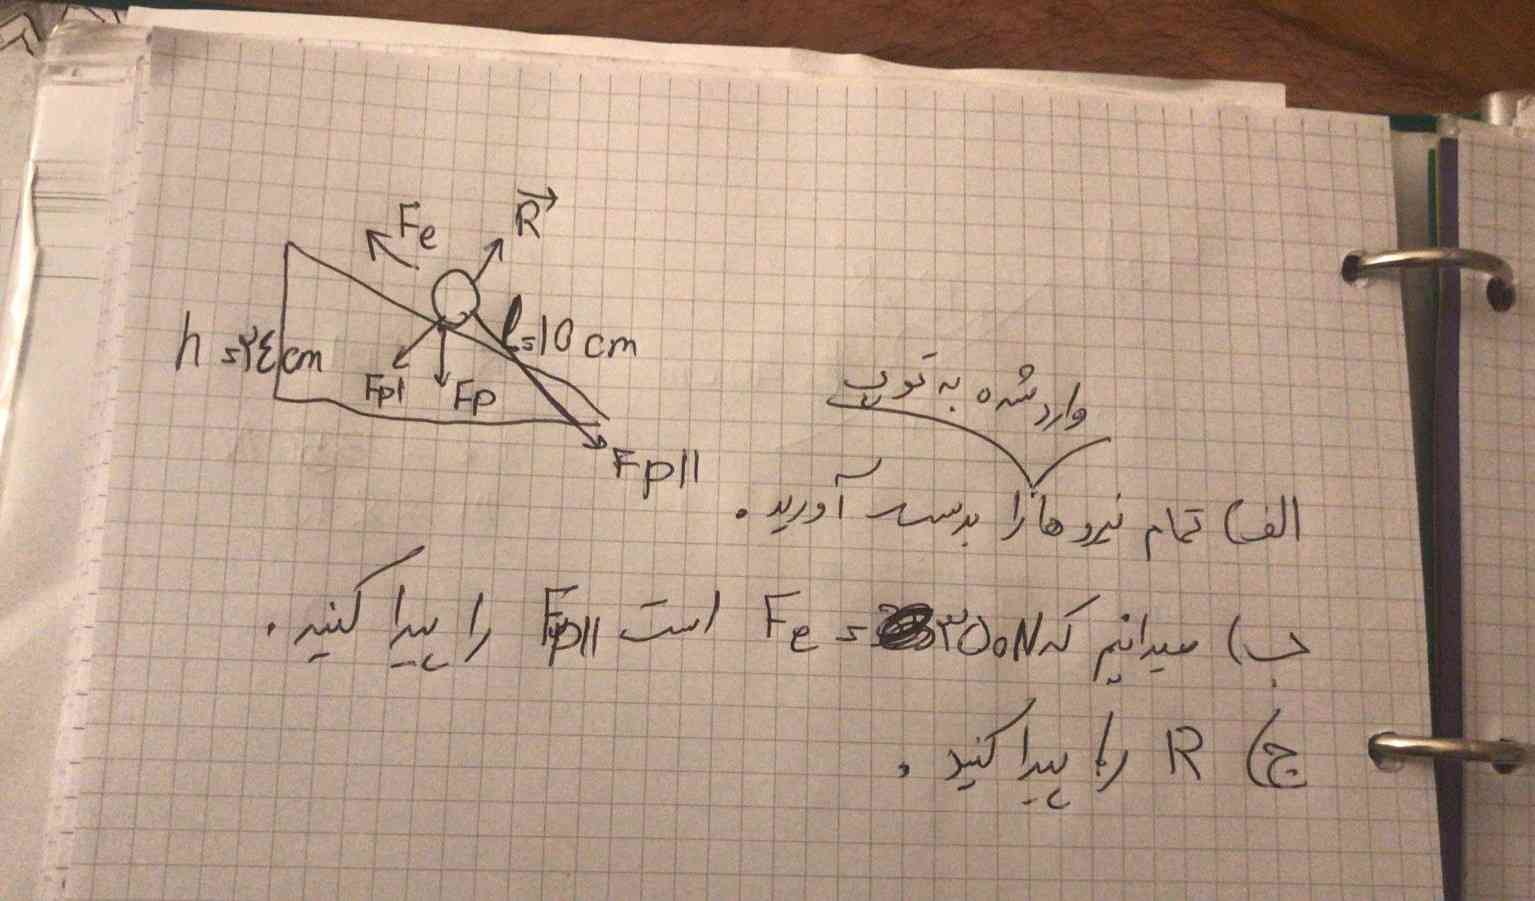 Fe
R
h = ٢٤ cm
l = 10 cm
Fp⊥
Fp
Fp||
وارد شده به توپ
الف) تمام نیروها را بدست آورید.
ب) میدانیم که Fe = ۳۵۰N است Fp|| را پیدا کنید.
ج) R را پیدا کنید.